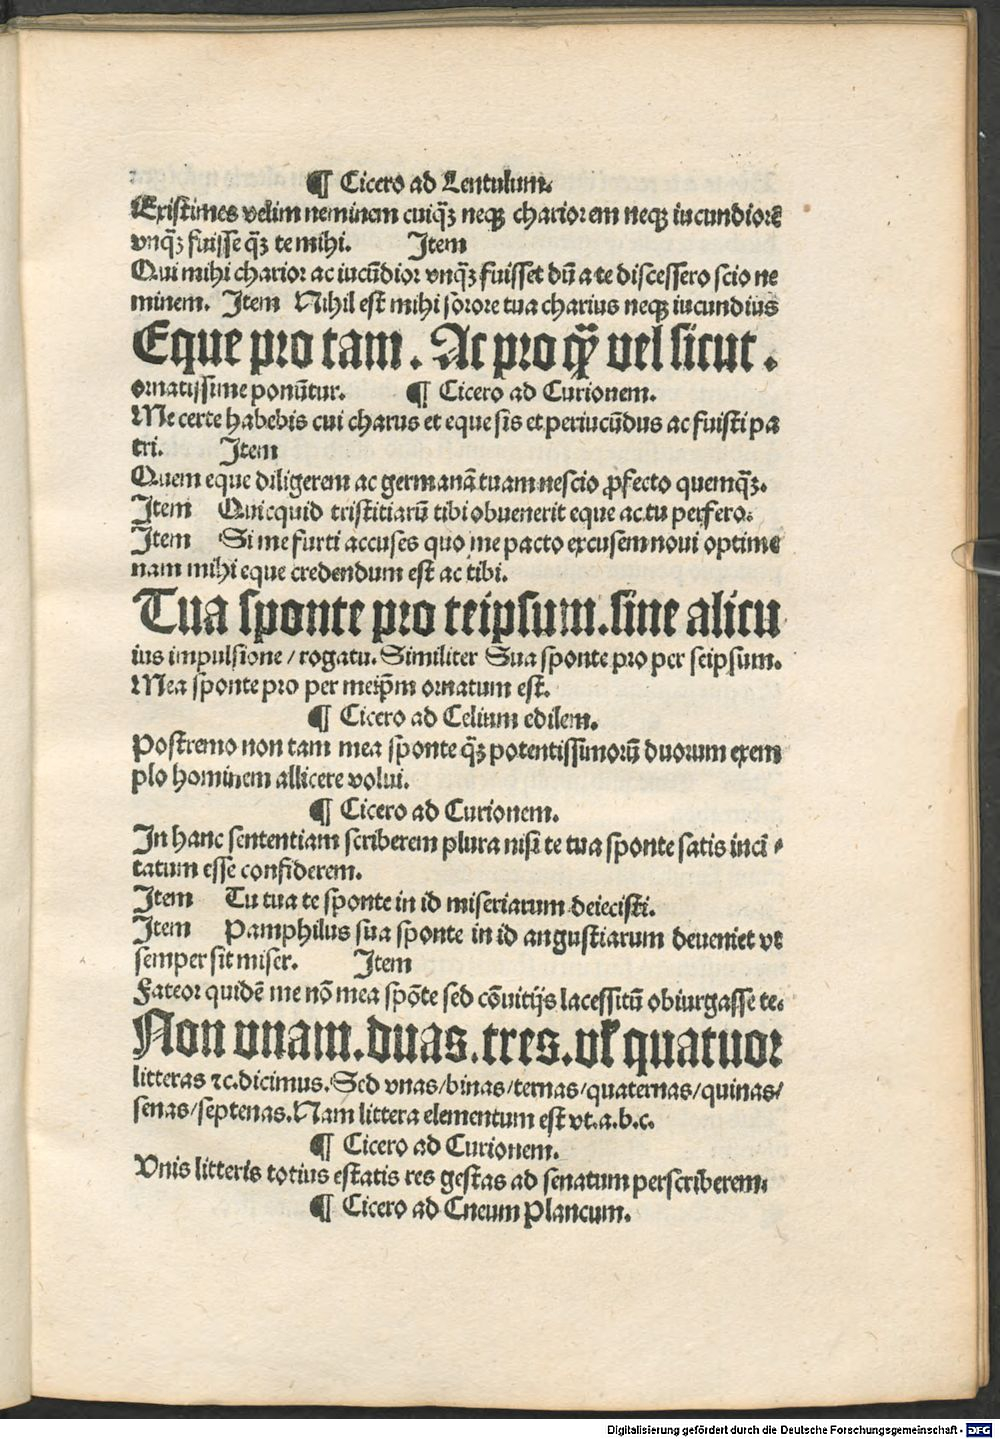 ¶ Cicero ad Lentulum.
Existimes velim neminem cuiqꝫ neqꝫ chariorem neqꝫ iucundiorē
vnqꝫ fuisse qꝫ te mihi. Item
Qui mihi charior ac iucūdior vnqꝫ fuisset dū a te discessero scio ne
minem. Item Nihil est mihi sorore tua charius neqꝫ iucundius
Eque pro tam. Ac pro qꝫ vel sicut.
ornatissime ponūtur. ¶ Cicero ad Curionem.
Me certe habebis cui charus et eque sis et periucūdus ac fuisti pa
tri. Item
Quem eque diligerem ac germanā tuam nescio ꝓfecto quemqꝫ.
Item Quicquid tristitiarū tibi obuenerit eque ac tu perfero.
Item Si me furti accuses quo me pacto excusem noui optime
nam mihi eque credendum est ac tibi.
Tua sponte pro teipsum. sine alicu
ius impulsione / rogatu. Similiter Sua sponte pro per seipsum.
Mea sponte pro per meip̄m ornatum est.
¶ Cicero ad Celium edilem.
Postremo non tam mea sponte qꝫ potentissimorū duorum exem
plo hominem allicere volui.
¶ Cicero ad Curionem.
In hanc sententiam scriberem plura nisi te tua sponte satis inci⸗
tatum esse confiderem.
Item Tu tua te sponte in id miseriarum deiecisti.
Item Pamphilus sua sponte in id angustiarum deueniet vt
semper sit miser. Item
Fateor quidē me nō mea spōte sed cōuitijs lacessitū obiurgasse te.
Non vnam. duas. tres. vl̕ quatuor
litteras ⁊c. dicimus. Sed vnas / binas / ternas / quaternas / quinas /
senas / septenas. Nam littera elementum est vt. a. b. c.
¶ Cicero ad Curionem.
Vnis litteris totius estatis res gestas ad senatum perscriberem.
¶ Cicero ad Cneum Plancum.
Digitalisierung gefördert durch die Deutsche Forschungsgemeinschaft - DFG